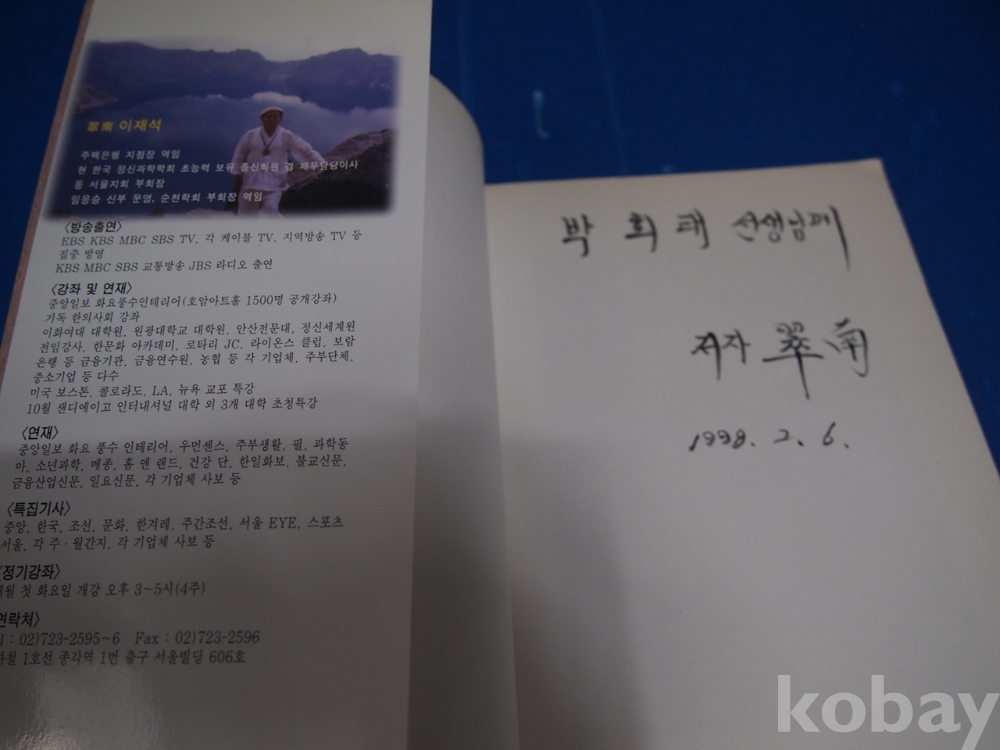 翠南 이재석
주택은행 지점장 역임
현 한국 정신과학학회 초능력 보유 종신회원 겸 재무담당이사
동 서울지회 부회장
임응승 신부 문영, 순천학회 부회장 역임
〈방송출연〉
EBS KBS MBC SBS TV, 각 케이블 TV, 지역방송 TV 등
집중 방영
KBS MBC SBS 교통방송 JBS 라디오 출연
〈강좌 및 연재〉
중앙일보 화요풍수인테리어(호암아트홀 1500명 공개강좌)
기독 한의사회 강좌
이화여대 대학원, 원광대학교 대학원, 안산전문대, 정신세계원
전임강사, 한문화 아카데미, 로타리 JC, 라이온스 클럽, 보람
은행 등 금융기관, 금융연수원, 농협 등 각 기업체, 주부단체,
중소기업 등 다수
미국 보스톤, 콜로라도, LA, 뉴욕 교포 특강
10월 샌디에이고 인터내셔널 대학 외 3개 대학 초청특강
〈연재〉
중앙일보 화요 풍수 인테리어, 우먼센스, 주부생활, 필, 과학동
아, 소년과학, 메종, 홈 엔 랜드, 건강 단, 한일화보, 불교신문,
금융산업신문, 일요신문, 각 기업체 사보 등
〈특집기사〉
중앙, 한국, 조선, 문화, 한겨레, 주간조선, 서울 EYE, 스포츠
서울, 각 주·월간지, 각 기업체 사보 등
〈정기강좌〉
매월 첫 화요일 개강 오후 3~5시(4주)
연락처〉
: 02)723-2595~6 Fax : 02)723-2596
하철 1호선 종각역 1번 출구 서울빌딩 606호
박 희 태 선생님께
저자 翠南
1998. 2. 6.
kobay